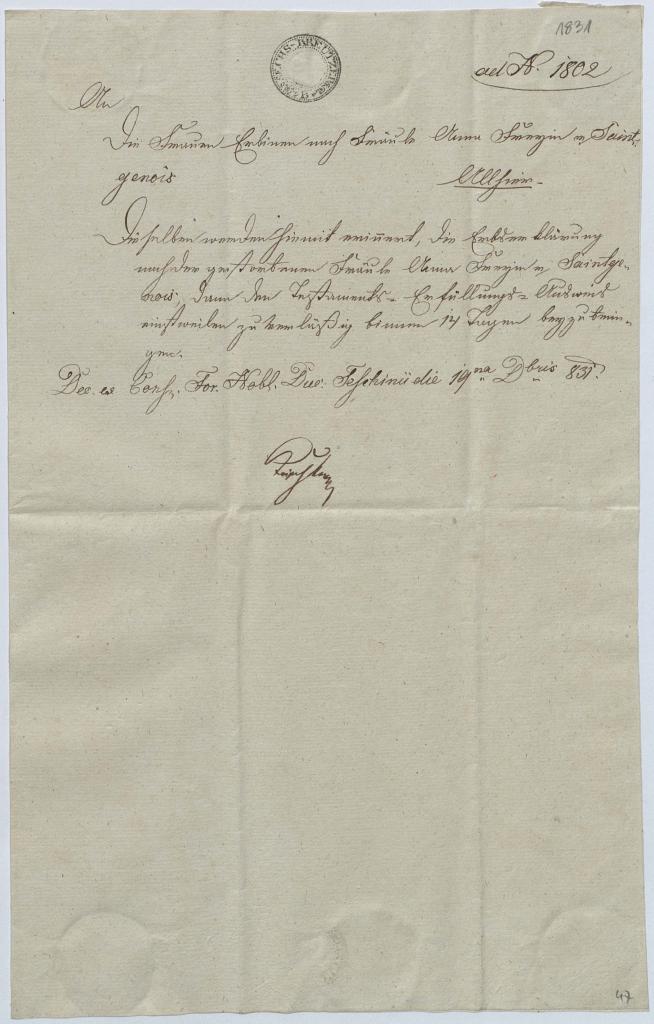 1831
SECHS KREUTZER
ad N. 1802
An
Die Frauen Erbinen nach Fräule Anna Freyin v Saint-
genois
Allhier.
Dieselben werden hiemit erinnert, die Erbserklärung
nach der gestorbenen Fräule Anna Freyin v Saintge-
nois, dann den Testaments- Erfüllungs- Ausweis
einstweilen zuverläßig binnen 14 Tagen beyzubrin-
gen.
Dec. ex Cons. For. Nobl. Duc. Teschinii die 19na Dbris 831.
47